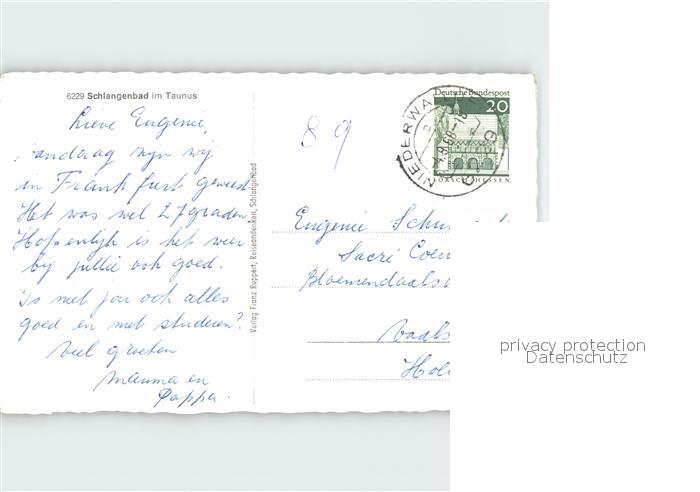 6229 Schlangenbad im Taunus
Lieve Eugenie,
vandaag zijn wij
in Frankfurt geweest
Het was wel 27 graden
Hopenlijk is het weer
bij jullie ook goed.
Is met jou ook alles
goed en met studeren?
veel groeten
mamma en
Pappa.
Verlag Franz Ruppert, Reiseandenken, Schlangenbad
89
Deutsche Bundespost
20
LORSCH/HESSEN
NIEDERWA
4.9.68-18
Eugenie Schu
Sacré Coeu
Bloemendaals
Vaals
Hol
privacy protection
Datenschutz